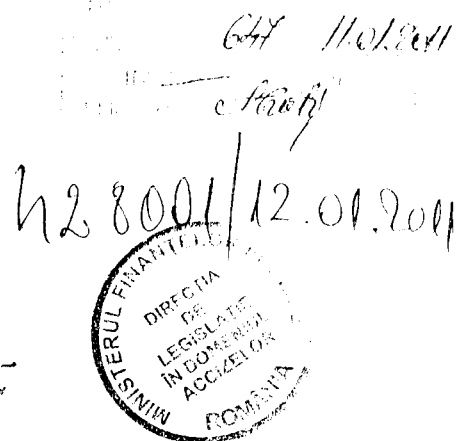 647 11.01.2011
428001/12.01.2011
MINISTERUL FINANȚELOR
DIRECȚIA
DE
LEGISLAȚIE
ÎN DOMENIUL
ACCIZELOR
ROMÂNIA